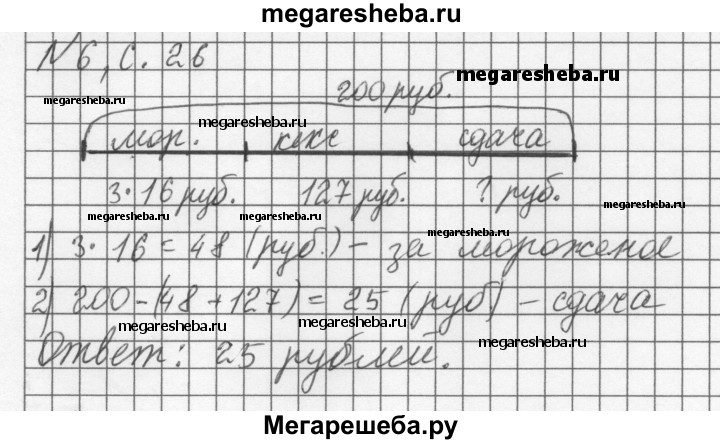 megaresheba.ru
N6, с. 26
megaresheba.ru
200 руб.
megaresheba.ru
megaresheba.ru
мор. кекс сдача
3·16 руб. 127 руб. ? руб.
megaresheba.ru megaresheba.ru megaresheba.ru
1) 3·16=48 (руб.) – за мороженое
2) 200-(48+127)=25 (руб) – сдача
megaresheba.ru megaresheba.ru
Ответ: 25 рублей.
megaresheba.ru
Мегарешеба.ру